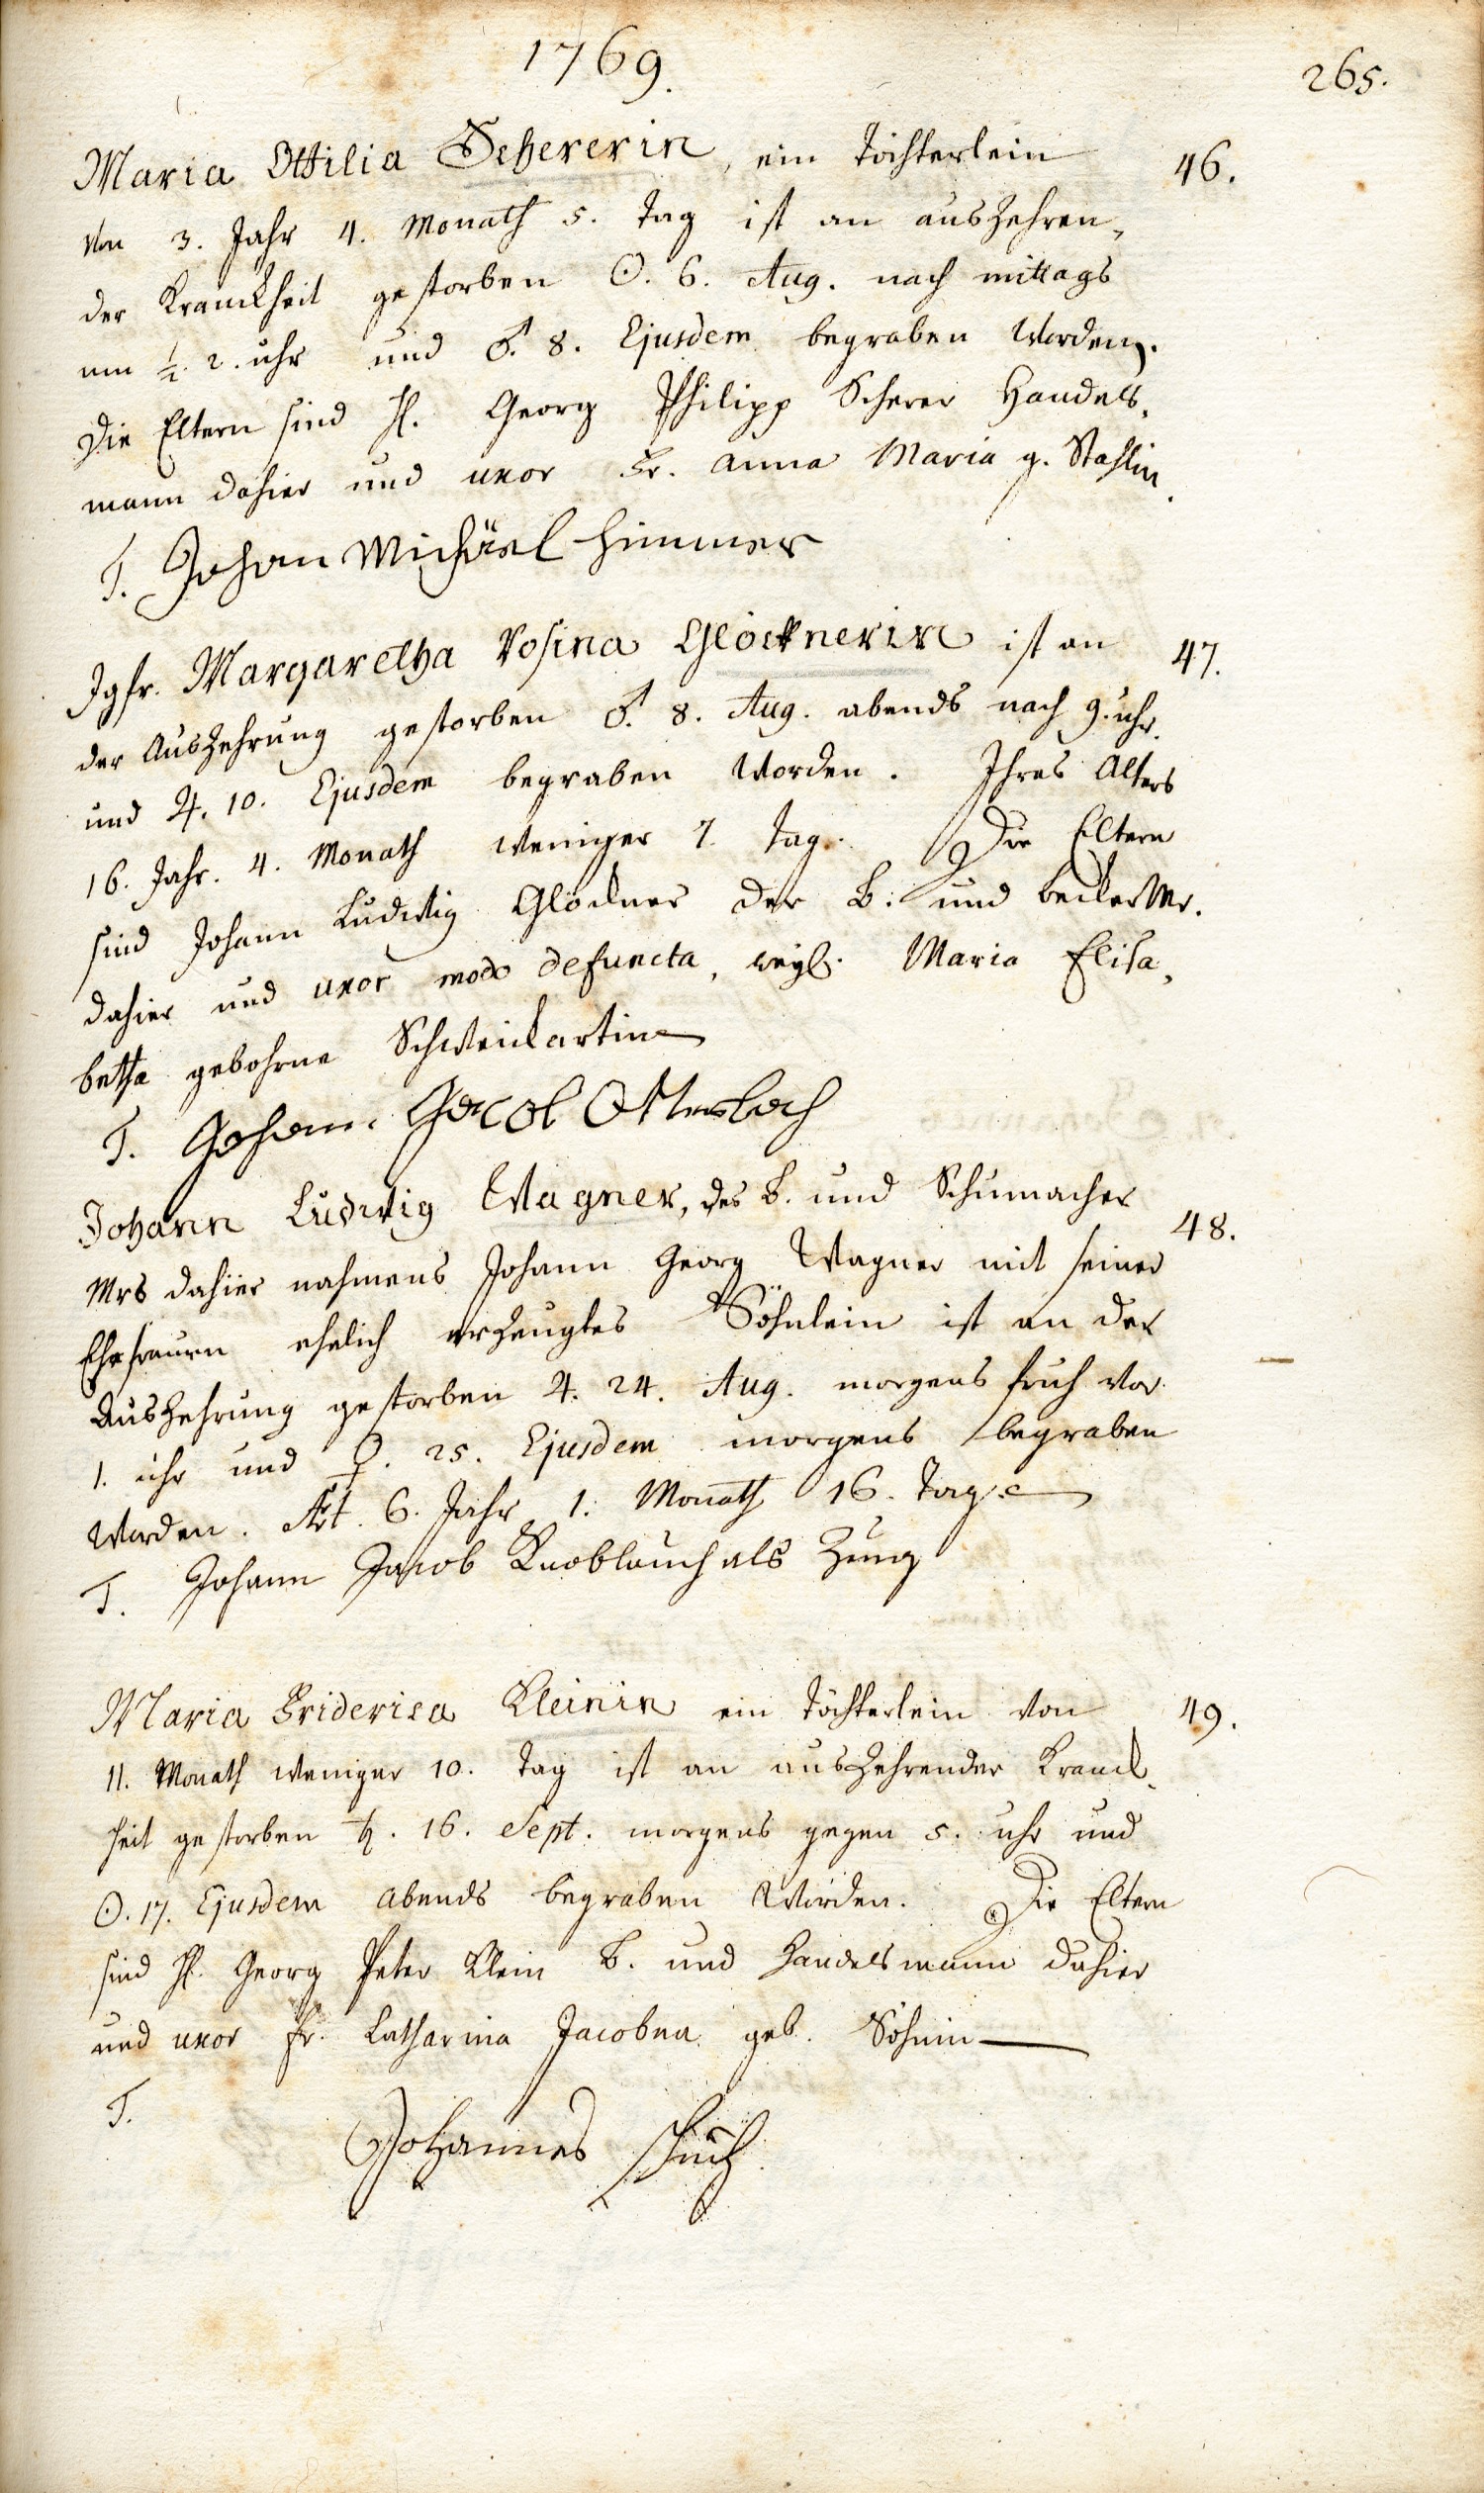 1769.
265.
Maria Ottilia Schererin, ein Töchterlein
46.
von 3. Jahr 4. Monath 5. Tag ist an auszehren,
der Kranckheit gestorben ☉. 6. Aug. nach mittags
um ½. 2. uhr und ♂. 8. Ejusdem begraben worden.
Die Eltern sind H. Georg Philipp Scherer Handels,
mann dahier und uxor Fr. Anna Maria g. Stahlin.
T. Johan Michäel Himmer
Jgfr. Margaretha Rosina Glöcknerin ist an
47.
der Auszehrung gestorben ♂. 8. Aug. abends nach 9. uhr.
und ♃. 10. Ejusdem begraben worden. Ihres Alters
16. Jahr. 4. Monath weniger 7. Tag. Die Eltern
sind Johann Ludwig Glöckner der B. und Becker Mr.
dahier und uxor modo defuncta, weyl. Maria Elisa,
betha gebohrne Schweickartin
T. Johann Jacob Otterbach
Johann Ludwig Wagner, des B. und Schumacher
48.
Mrs dahier nahmens Johann Georg Wagner mit seiner
Ehefrauen ehelich erzeugtes Söhnlein ist an der
Auszehrung gestorben ♃. 24. Aug. morgens fruh vor
1. uhr und ♀. 25. Ejusdem morgens begraben
worden. Æt. 6. Jahr 1. Monath 16. Tag.
T. Johann Jacob Knoblauch als Zeug
Maria Friderica Kleinin ein Töchterlein von
49.
11. Monath weniger 10. Tag ist an auszehrender Kranck,
heit gestorben ♄. 16. Sept. morgens gegen 5. uhr und
☉. 17. Ejusdem abends begraben worden. Die Eltern
sind H. Georg Peter Klein B. und Handelsmann dahier
und uxor Fr. Catharina Jacobea geb. Söhnin
T.
Johannes